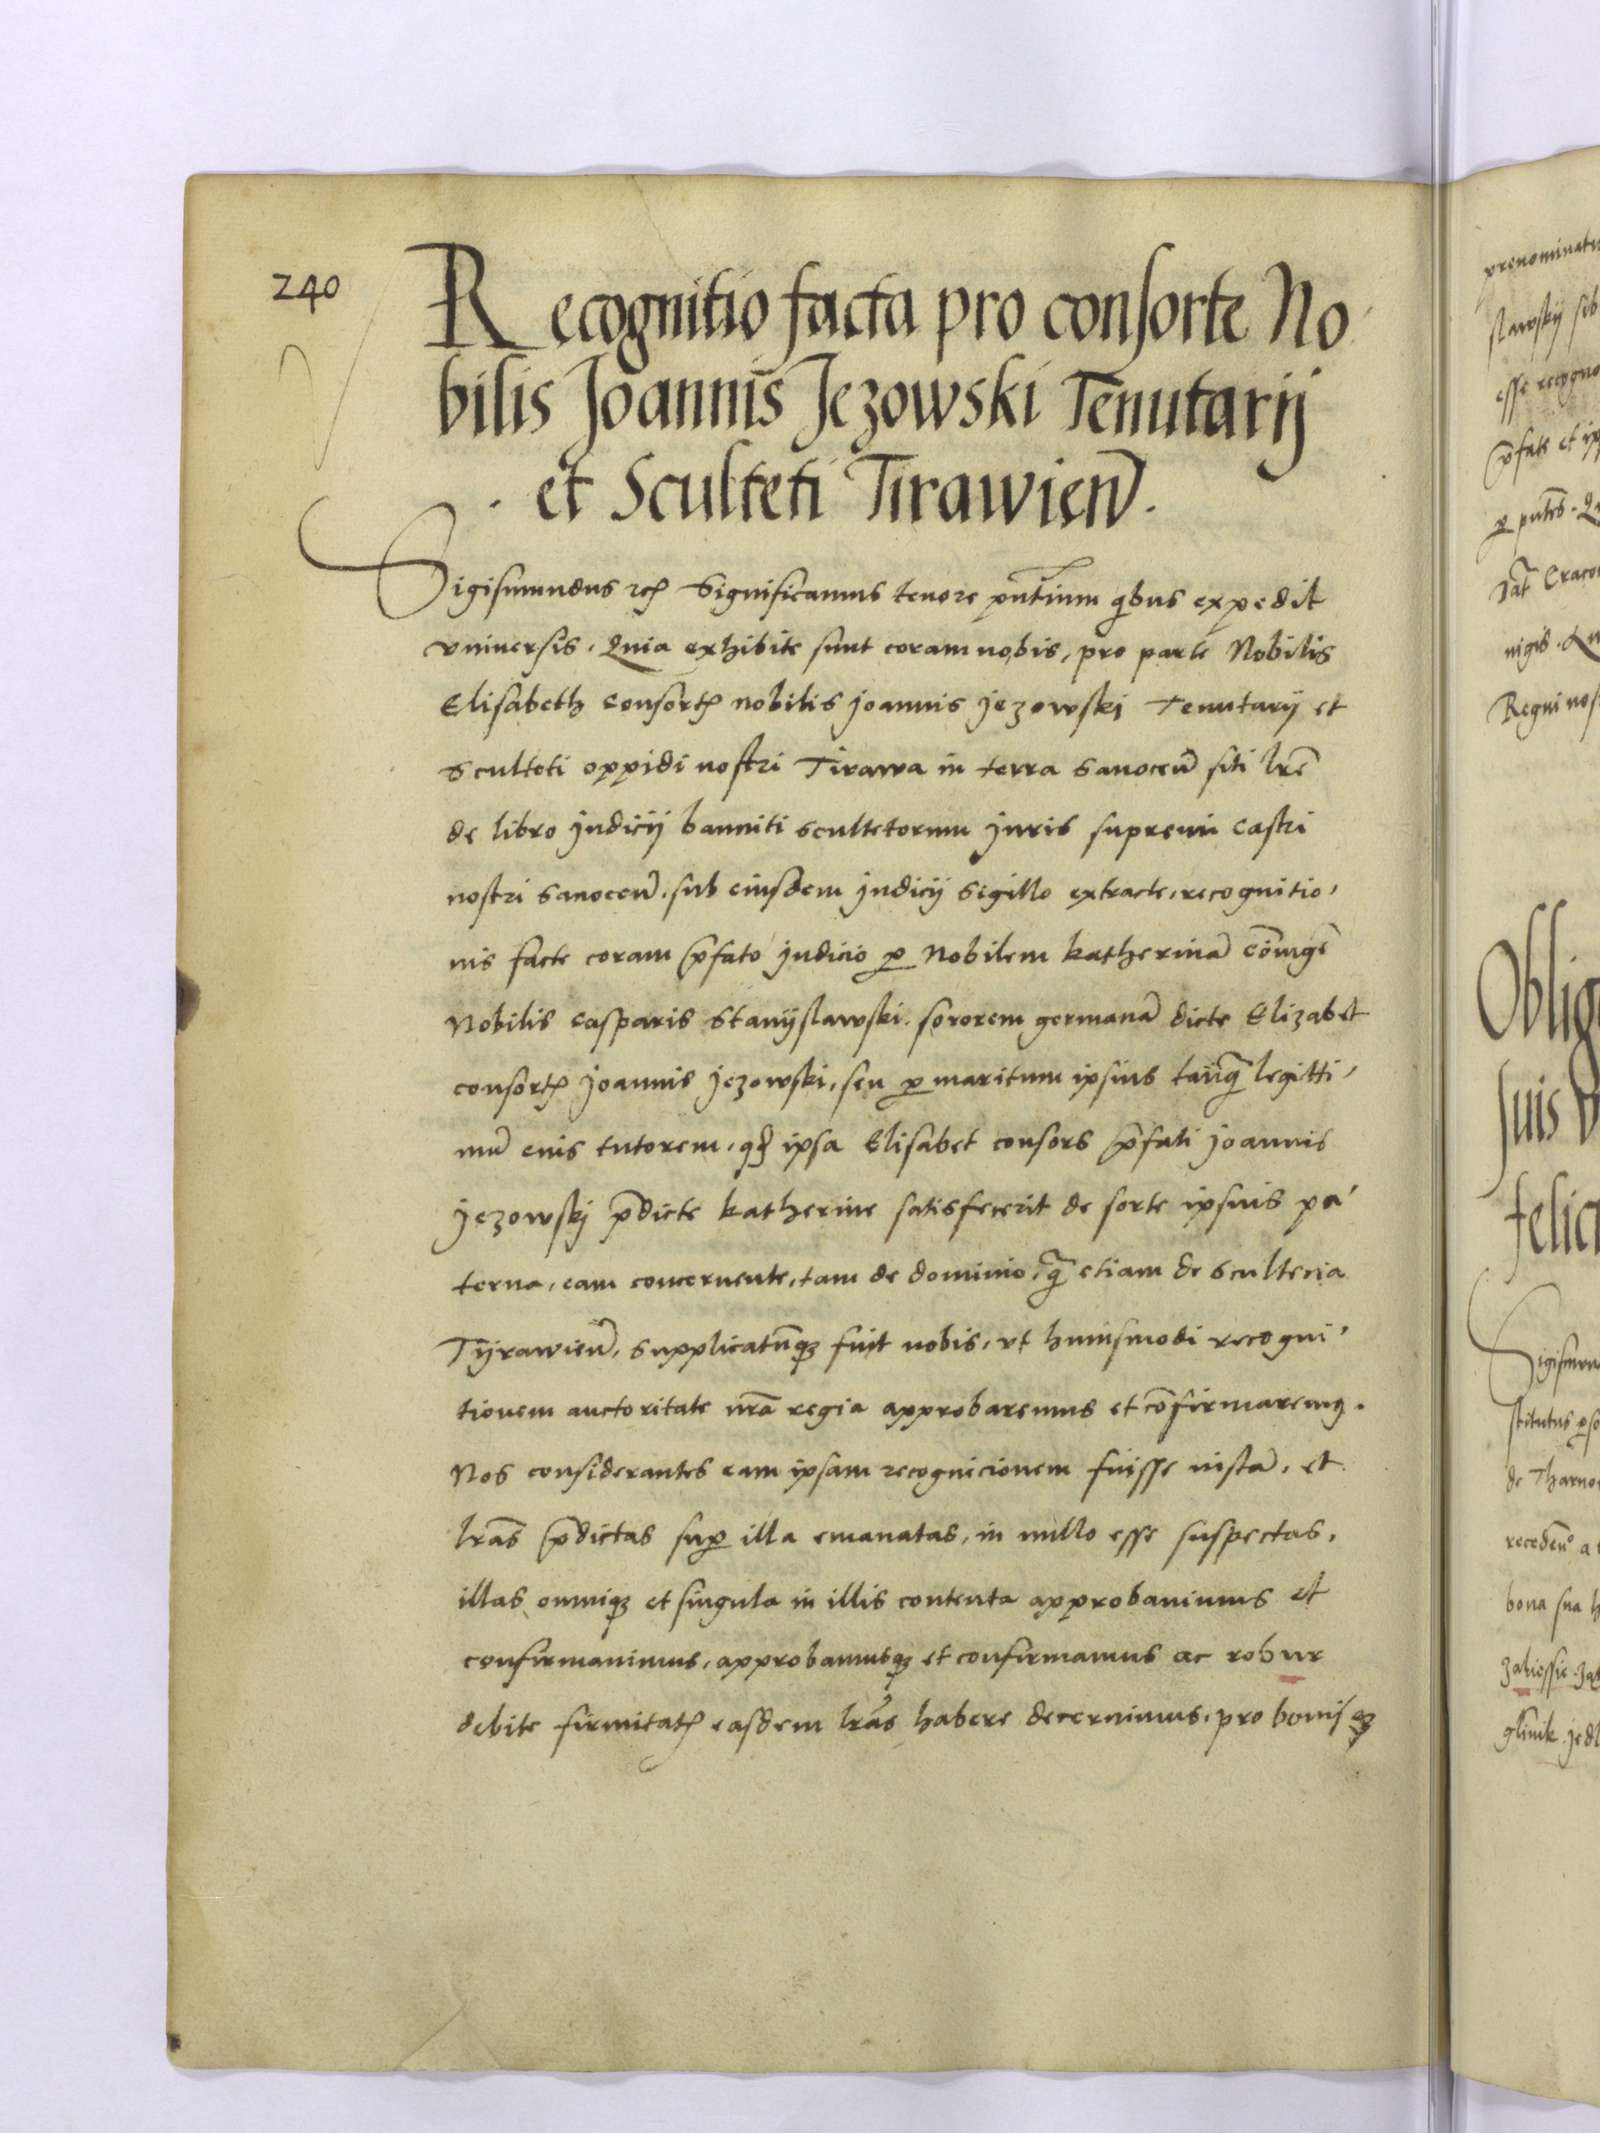 240
Recognitio facta pro consorte No
bilis Joannis Jezowski Tenutarij
et Sculteti Tirawień.
Sigismundus rcʒ Significamus tenore pñtium qibus expedit
vniversis. Quia exhibite sunt coram nobis, pro parte Nobilis
Elisabeth consortꝭ nobilis Joannis Jezowski Tenutarij et
Sculteti oppidi nostri Tirawa in terra Sanoceñ siti lrẽ
de libro Judicij banniti scultetorum Juris supremi castri
nostri Sanoceñ. sub eiusdem Judicij Sigillo extracte, recognitio,
nis facte coram p̃fato Judicio ꝑ Nobilem katherinã cõiugẽ
Nobilis Casparis Stanijslawski. sororem germanã dicte Elizabet
consortꝭ Joannis Jezowski, seu ꝑ maritum ipsius tanq̃ legitti,
mũ eius tutorem, qđ ipsa Elisabet consors p̃fati Joannis
Jezowskj p̃dicte katherine satisfecerit de sorte ipsius pa,
terna, eam concernente, tam de dominio, q̃ etiam de scultecia
Tijrawień, supplicatũqꝫ fuit nobis, vt huiusmodi recogni,
tionem auctoritate nrã regia approbaremus et cõfirmaremꝰ.
Nos considerantes eam ipsam recognicionem fuisse iustã, et
lrãs p̃dictas suꝑ illa emanatas, in nullo esse suspectas,
illas omniaqꝫ et singula in illis contenta approbauimus et
confirmauimus, approbamusqꝫ et confirmamus ac robur
debite firmitatꝭ easdem lrãs habere decernimus. pro bonisqꝫ
prenominatu
slawskij sib
esse recogno
p̃fate et ip
ꝑ pñtes. Qu
Dat̃ Craco
nigis. Qu
Regni nos
Oblig
suis v
felici
Sigismun
stitutus ꝑso
de Tharno
recedeñ° a
bona sua h
glinik. Jedl